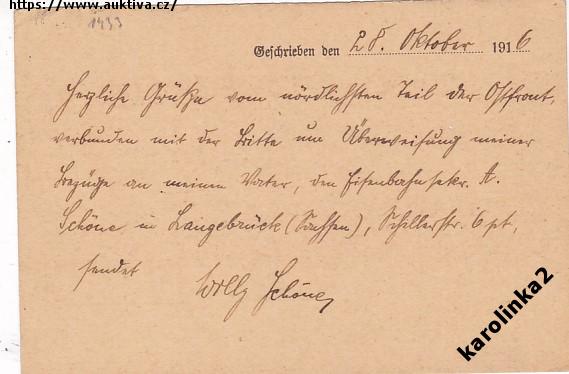 https://www.auktiva.cz/
1433
Geschrieben den 28. Oktober 1916
Herzliche Grüße vom nördlichsten Teil der Ostfront,
verbunden mit der Bitte um Überweisung meiner
Bezüge an meinen Vater, den Eisenbahnsekr. A.
Schöne in Langebrück (Sachsen), Schillerstr. 6 pt,
sendet Willy Schöne
karolinka2